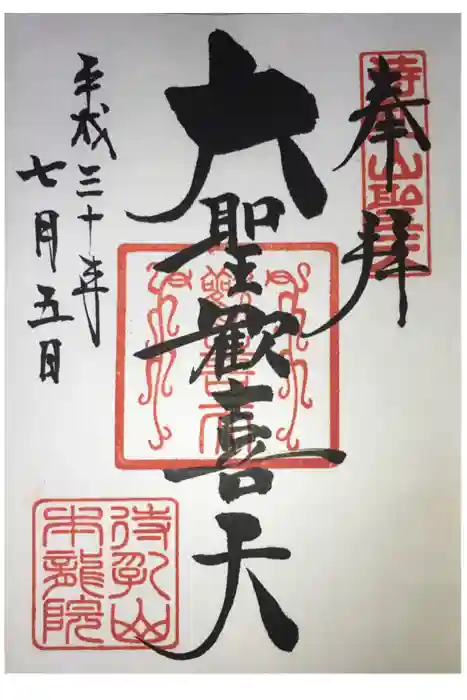 奉拝
待乳山聖天
大聖歓喜天
平成三十年
七月五日
待乳山
本龍院